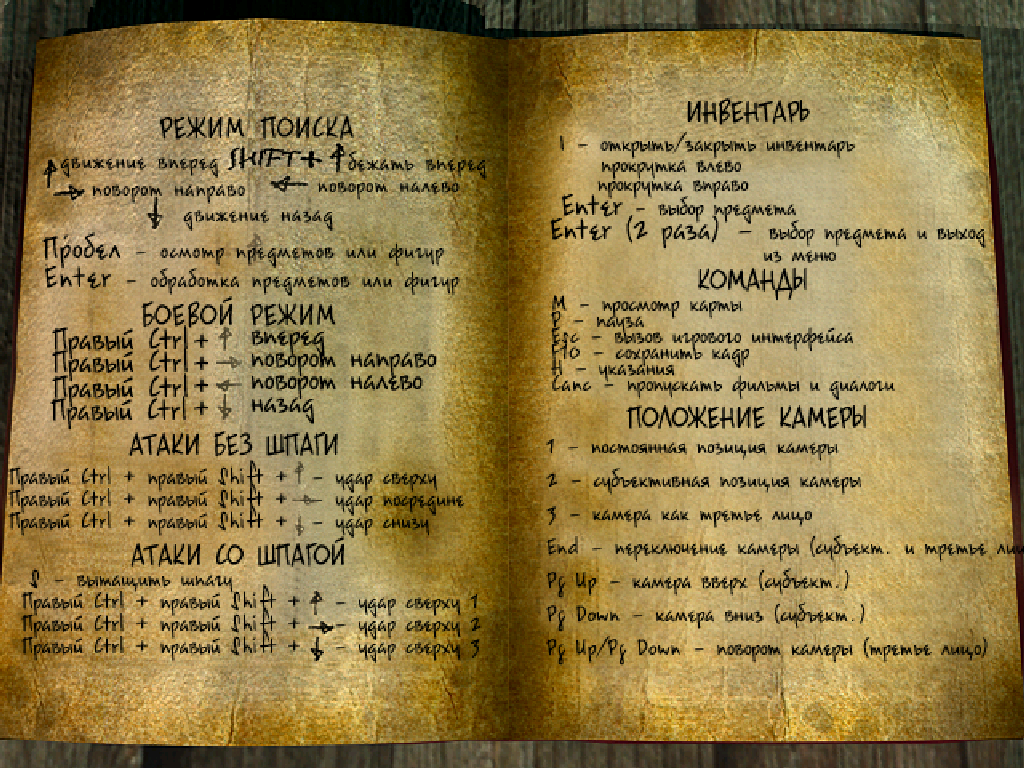 РЕЖИМ ПОИСКА
↑ движение вперед SHIFT+ ↑ бежать вперед
→ поворот направо ← поворот налево
↓ движение назад
Пробел - осмотр предметов или фигур
Enter - обработка предметов или фигур
БОЕВОЙ РЕЖИМ
Правый Ctrl + ↑ вперед
Правый Ctrl + → поворот направо
Правый Ctrl + ← поворот налево
Правый Ctrl + ↓ назад
АТАКИ БЕЗ ШПАГИ
Правый Ctrl + правый Shift + ↑ - удар сверху
Правый Ctrl + правый Shift + → - удар посредине
Правый Ctrl + правый Shift + ↓ - удар снизу
АТАКИ СО ШПАГОЙ
S - вытащить шпагу
Правый Ctrl + правый Shift + ↑ - удар сверху 1
Правый Ctrl + правый Shift + → - удар сверху 2
Правый Ctrl + правый Shift + ↓ - удар сверху 3
ИНВЕНТАРЬ
I - открыть/закрыть инвентарь
прокрутка влево
прокрутка вправо
Enter - выбор предмета
Enter (2 раза) - выбор предмета и выход
из меню
КОМАНДЫ
M - просмотр карты
P - пауза
Esc - вызов игрового интерфейса
F10 - сохранить кадр
H - указания
Canc - пропускать фильмы и диалоги
ПОЛОЖЕНИЕ КАМЕРЫ
1 - постоянная позиция камеры
2 - субъективная позиция камеры
3 - камера как третье лицо
End - переключение камеры (субъект. и третье
Pg Up - камера вверх (субъект.)
Pg Down - камера вниз (субъект.)
Pg Up/Pg Down - поворот камеры (третье лицо)